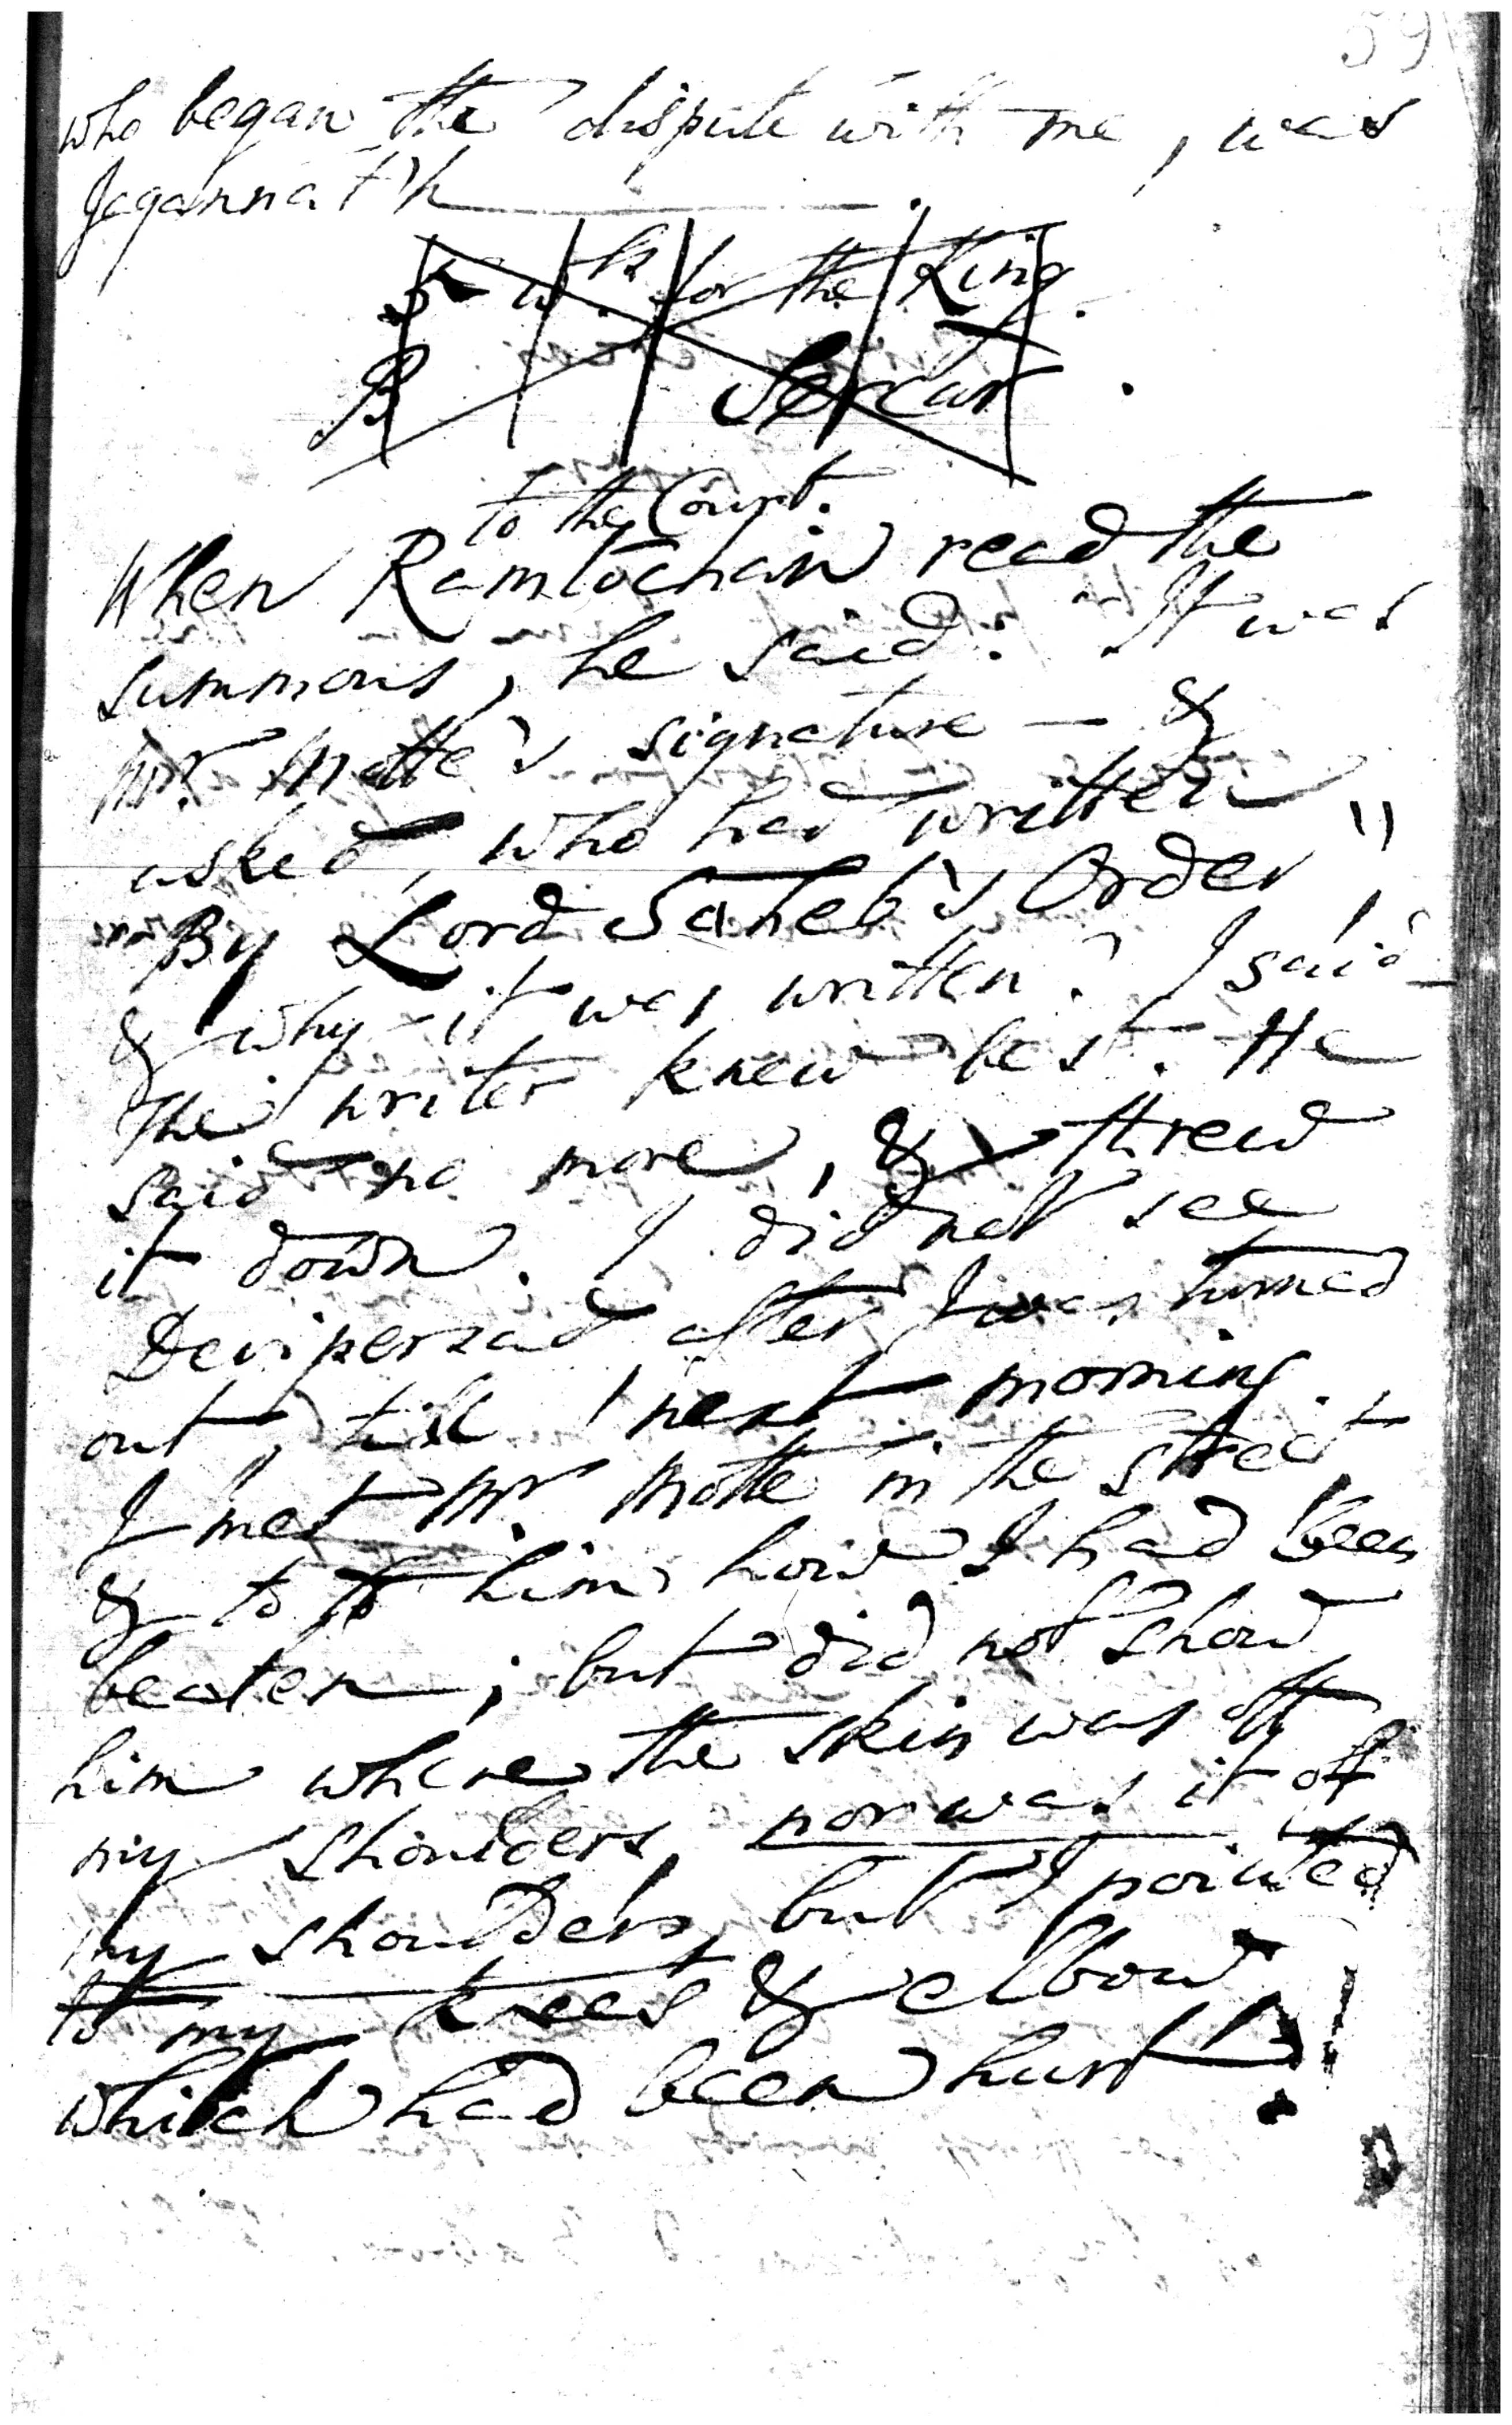 59
who began the dispute with me, was
Jagannat'h
5th wth for the King.
B Sercar.
to the Court.
When Ramlochan read the
summons, he said: "It was
Mr. Motte's signature — &
asked, who had written
By Lord Saheb's Order"
& why it was written? I said—
The writer knew best. He
said no more, & threw
it down. I did not see
Deviperzad after I was turned
out, till next morning.
I met Mr. Motte in the street
& to to him how I had been
beaten; but did not show
him where the skin was off
my shoulders, nor was it off
my shoulders, but I pointed
to my knees & elbow
which had been hurt!